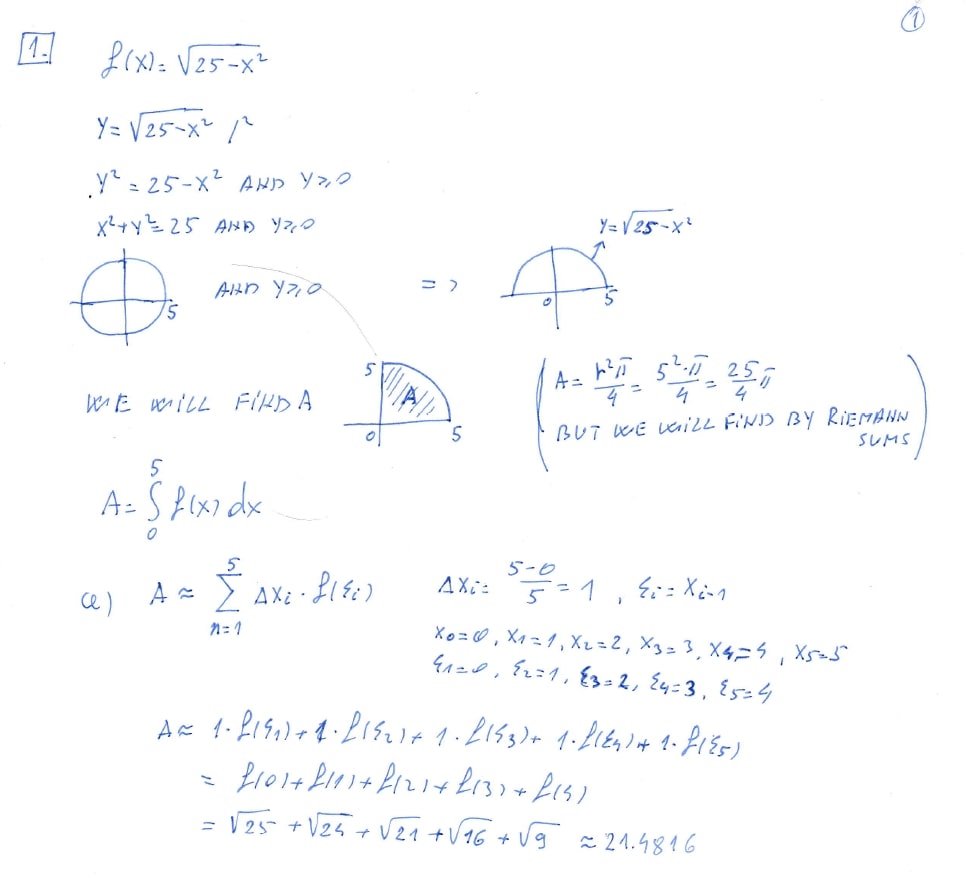 1
1.
f(x) = √25-x²
y = √25-x² /²
y² = 25-x² AND y≥0
x²+y² = 25 AND y≥0
y = √25-x²
5
AND y≥0
=>
0
5
WE WILL FIND A
5
A
0
5
A = r²π/4 = 5²·π/4 = 25/4 π
BUT WE WILL FIND BY RIEMANN
SUMS
A = ∫₀⁵ f(x) dx
a) A ≈ ∑ₙ₌₁⁵ Δxᵢ · f(ξᵢ) Δxᵢ = 5-0/5 = 1 , ξᵢ = xᵢ₋₁
x₀=0, x₁=1, x₂=2, x₃=3, x₄=4, x₅=5
ξ₁=0, ξ₂=1, ξ₃=2, ξ₄=3, ξ₅=4
A ≈ 1·f(ξ₁) + 1·f(ξ₂) + 1·f(ξ₃) + 1·f(ξ₄) + 1·f(ξ₅)
= f(0) + f(1) + f(2) + f(3) + f(4)
= √25 + √24 + √21 + √16 + √9 ≈ 21.4816